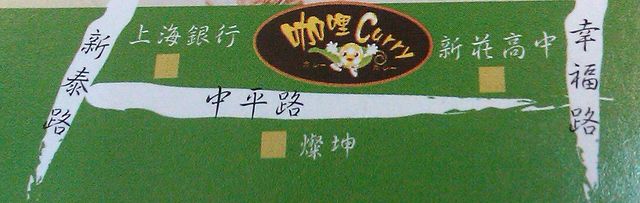 新泰路
上海銀行
咖哩Curry
カレー カレー
新莊高中
幸福路
中平路
燦坤